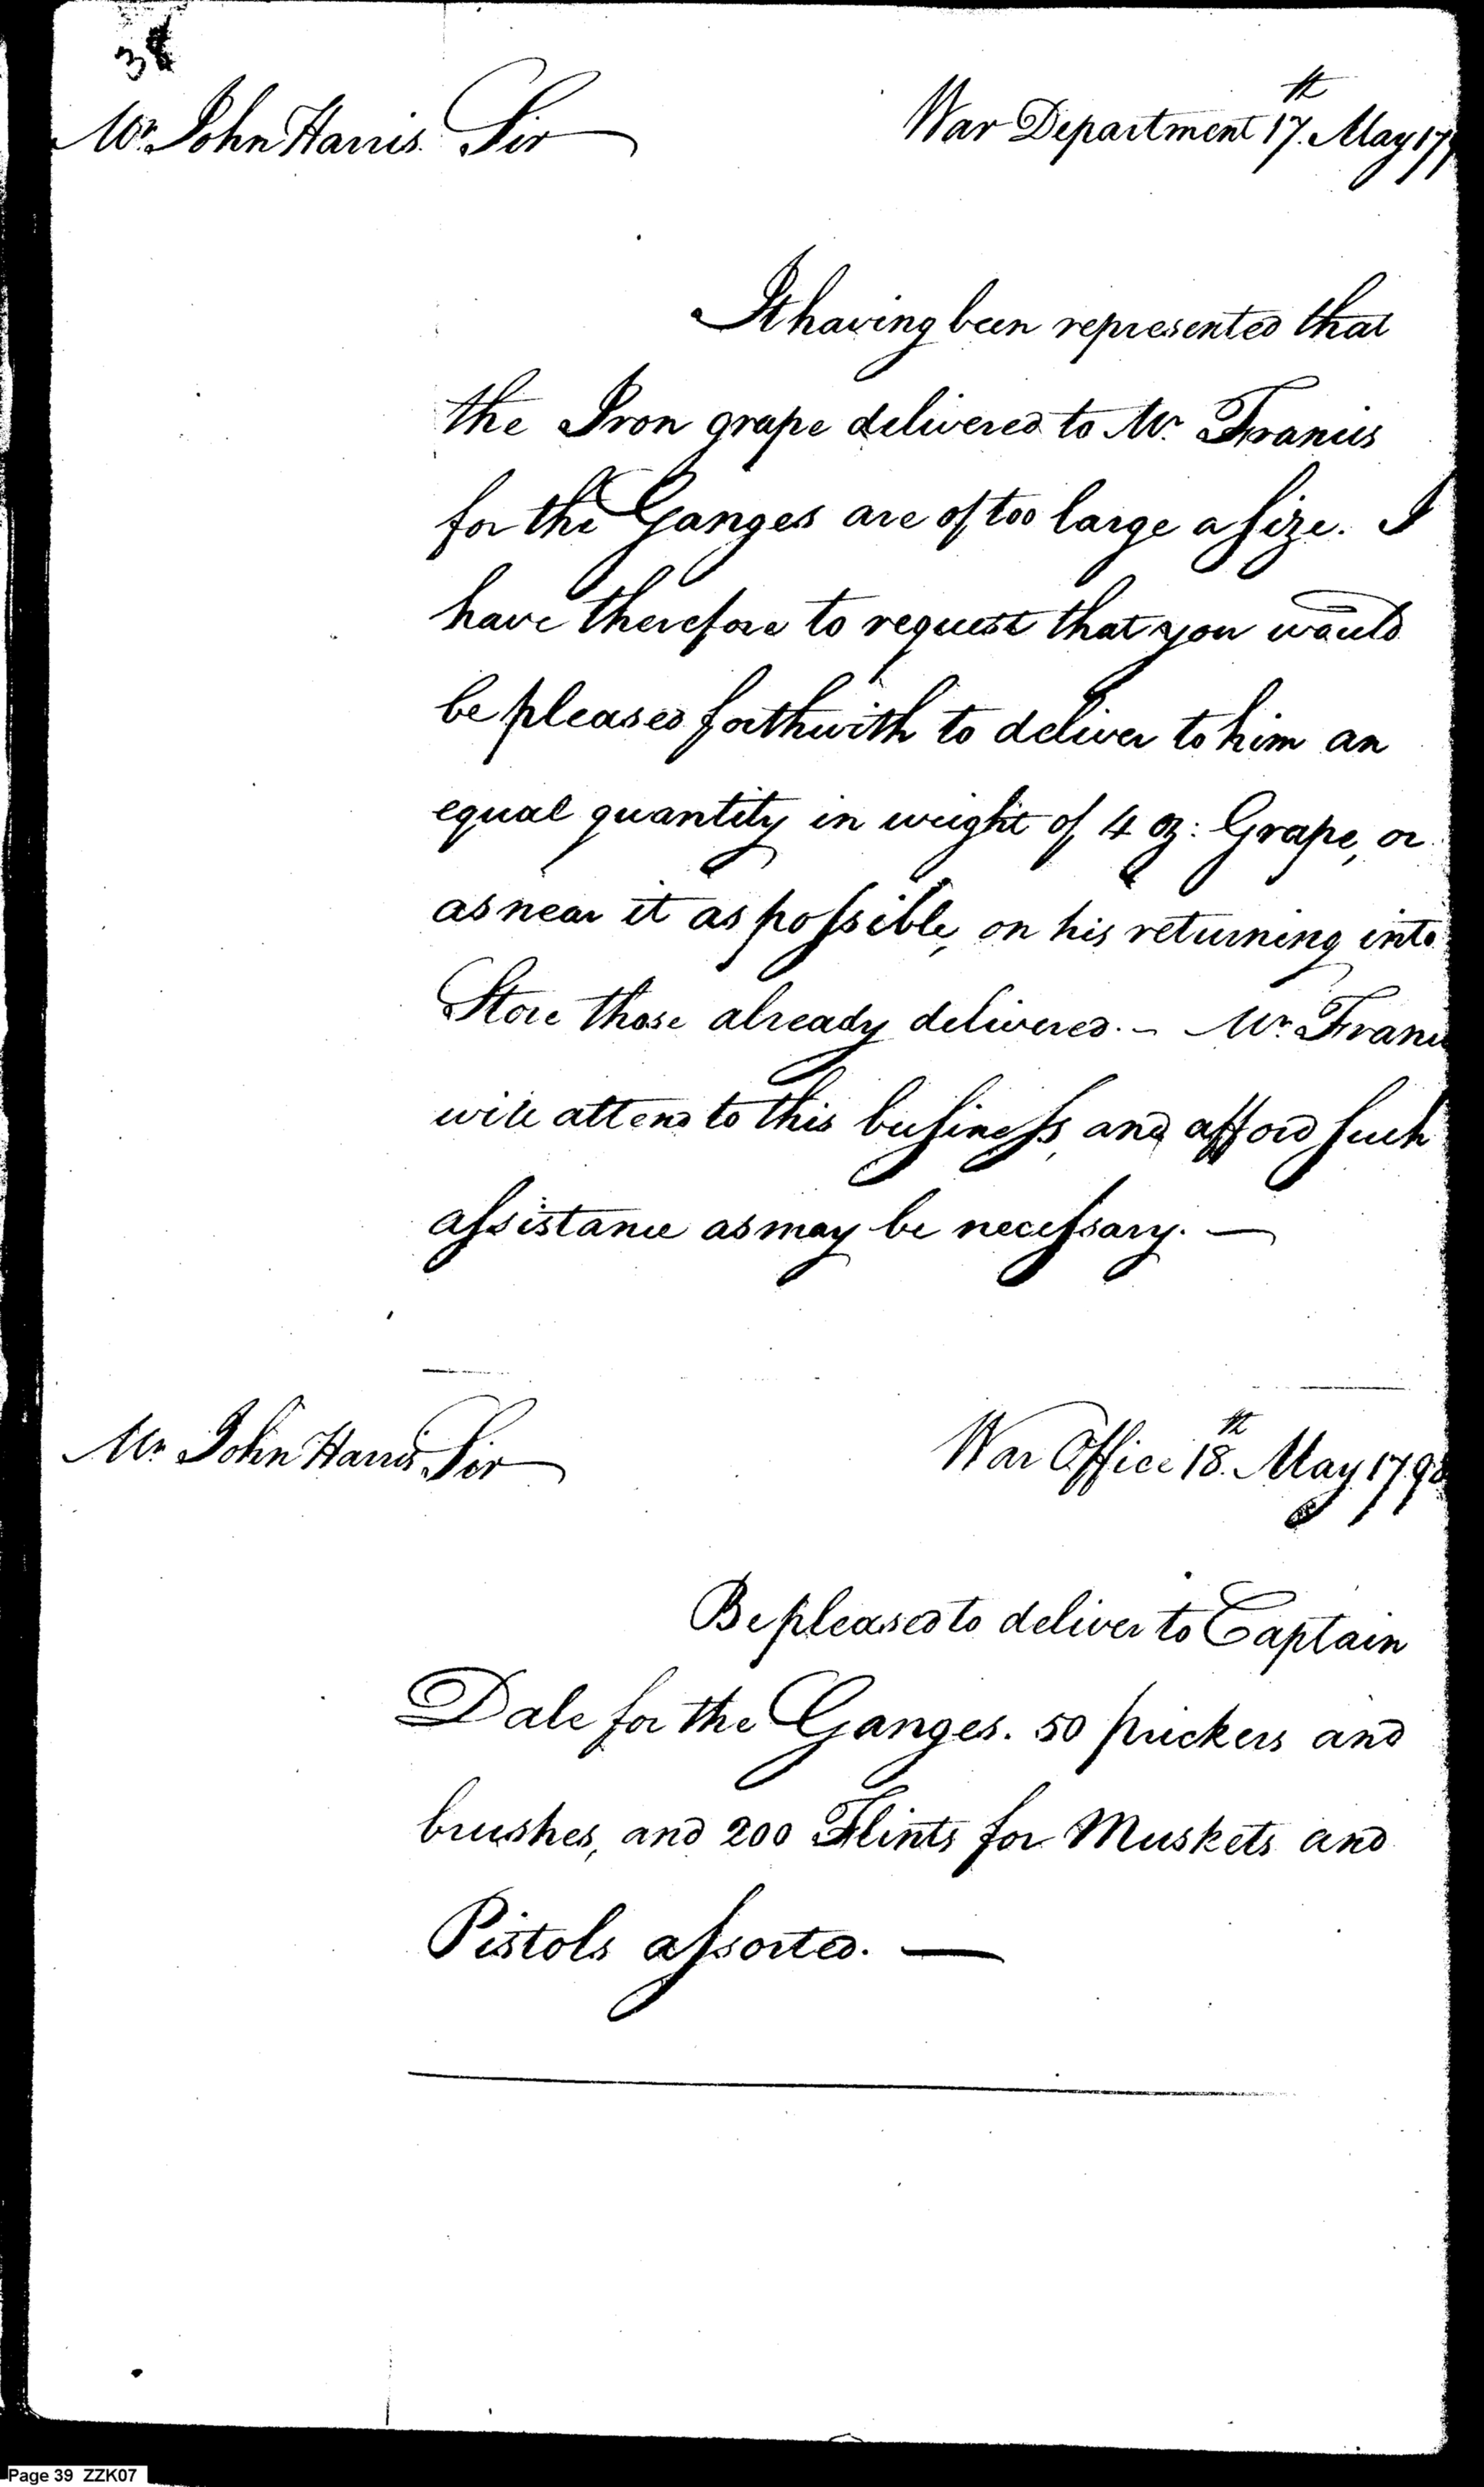 38
Mr. John Harris. Sir War Department 17th. May 17
It having been represented that
the Iron grape delivered to Mr. Francis
for the Ganges are of too large a size. I
have therefore to request that you would
be pleased forthwith to deliver to him an
equal quantity in weight of 4 oz: Grape, or
as near it as possible, on his returning into
Store those already delivered. - Mr. Franci
will attend to this business, and afford such
assistance as may be necessary. —
Mr. John Harris. Sir War Office 18th. May 1798
Be pleased to deliver to Captain
Dale for the Ganges. 50 prickers and
brushes, and 200 Flints for Muskets and
Pistols assorted. —
Page 39 ZZK07